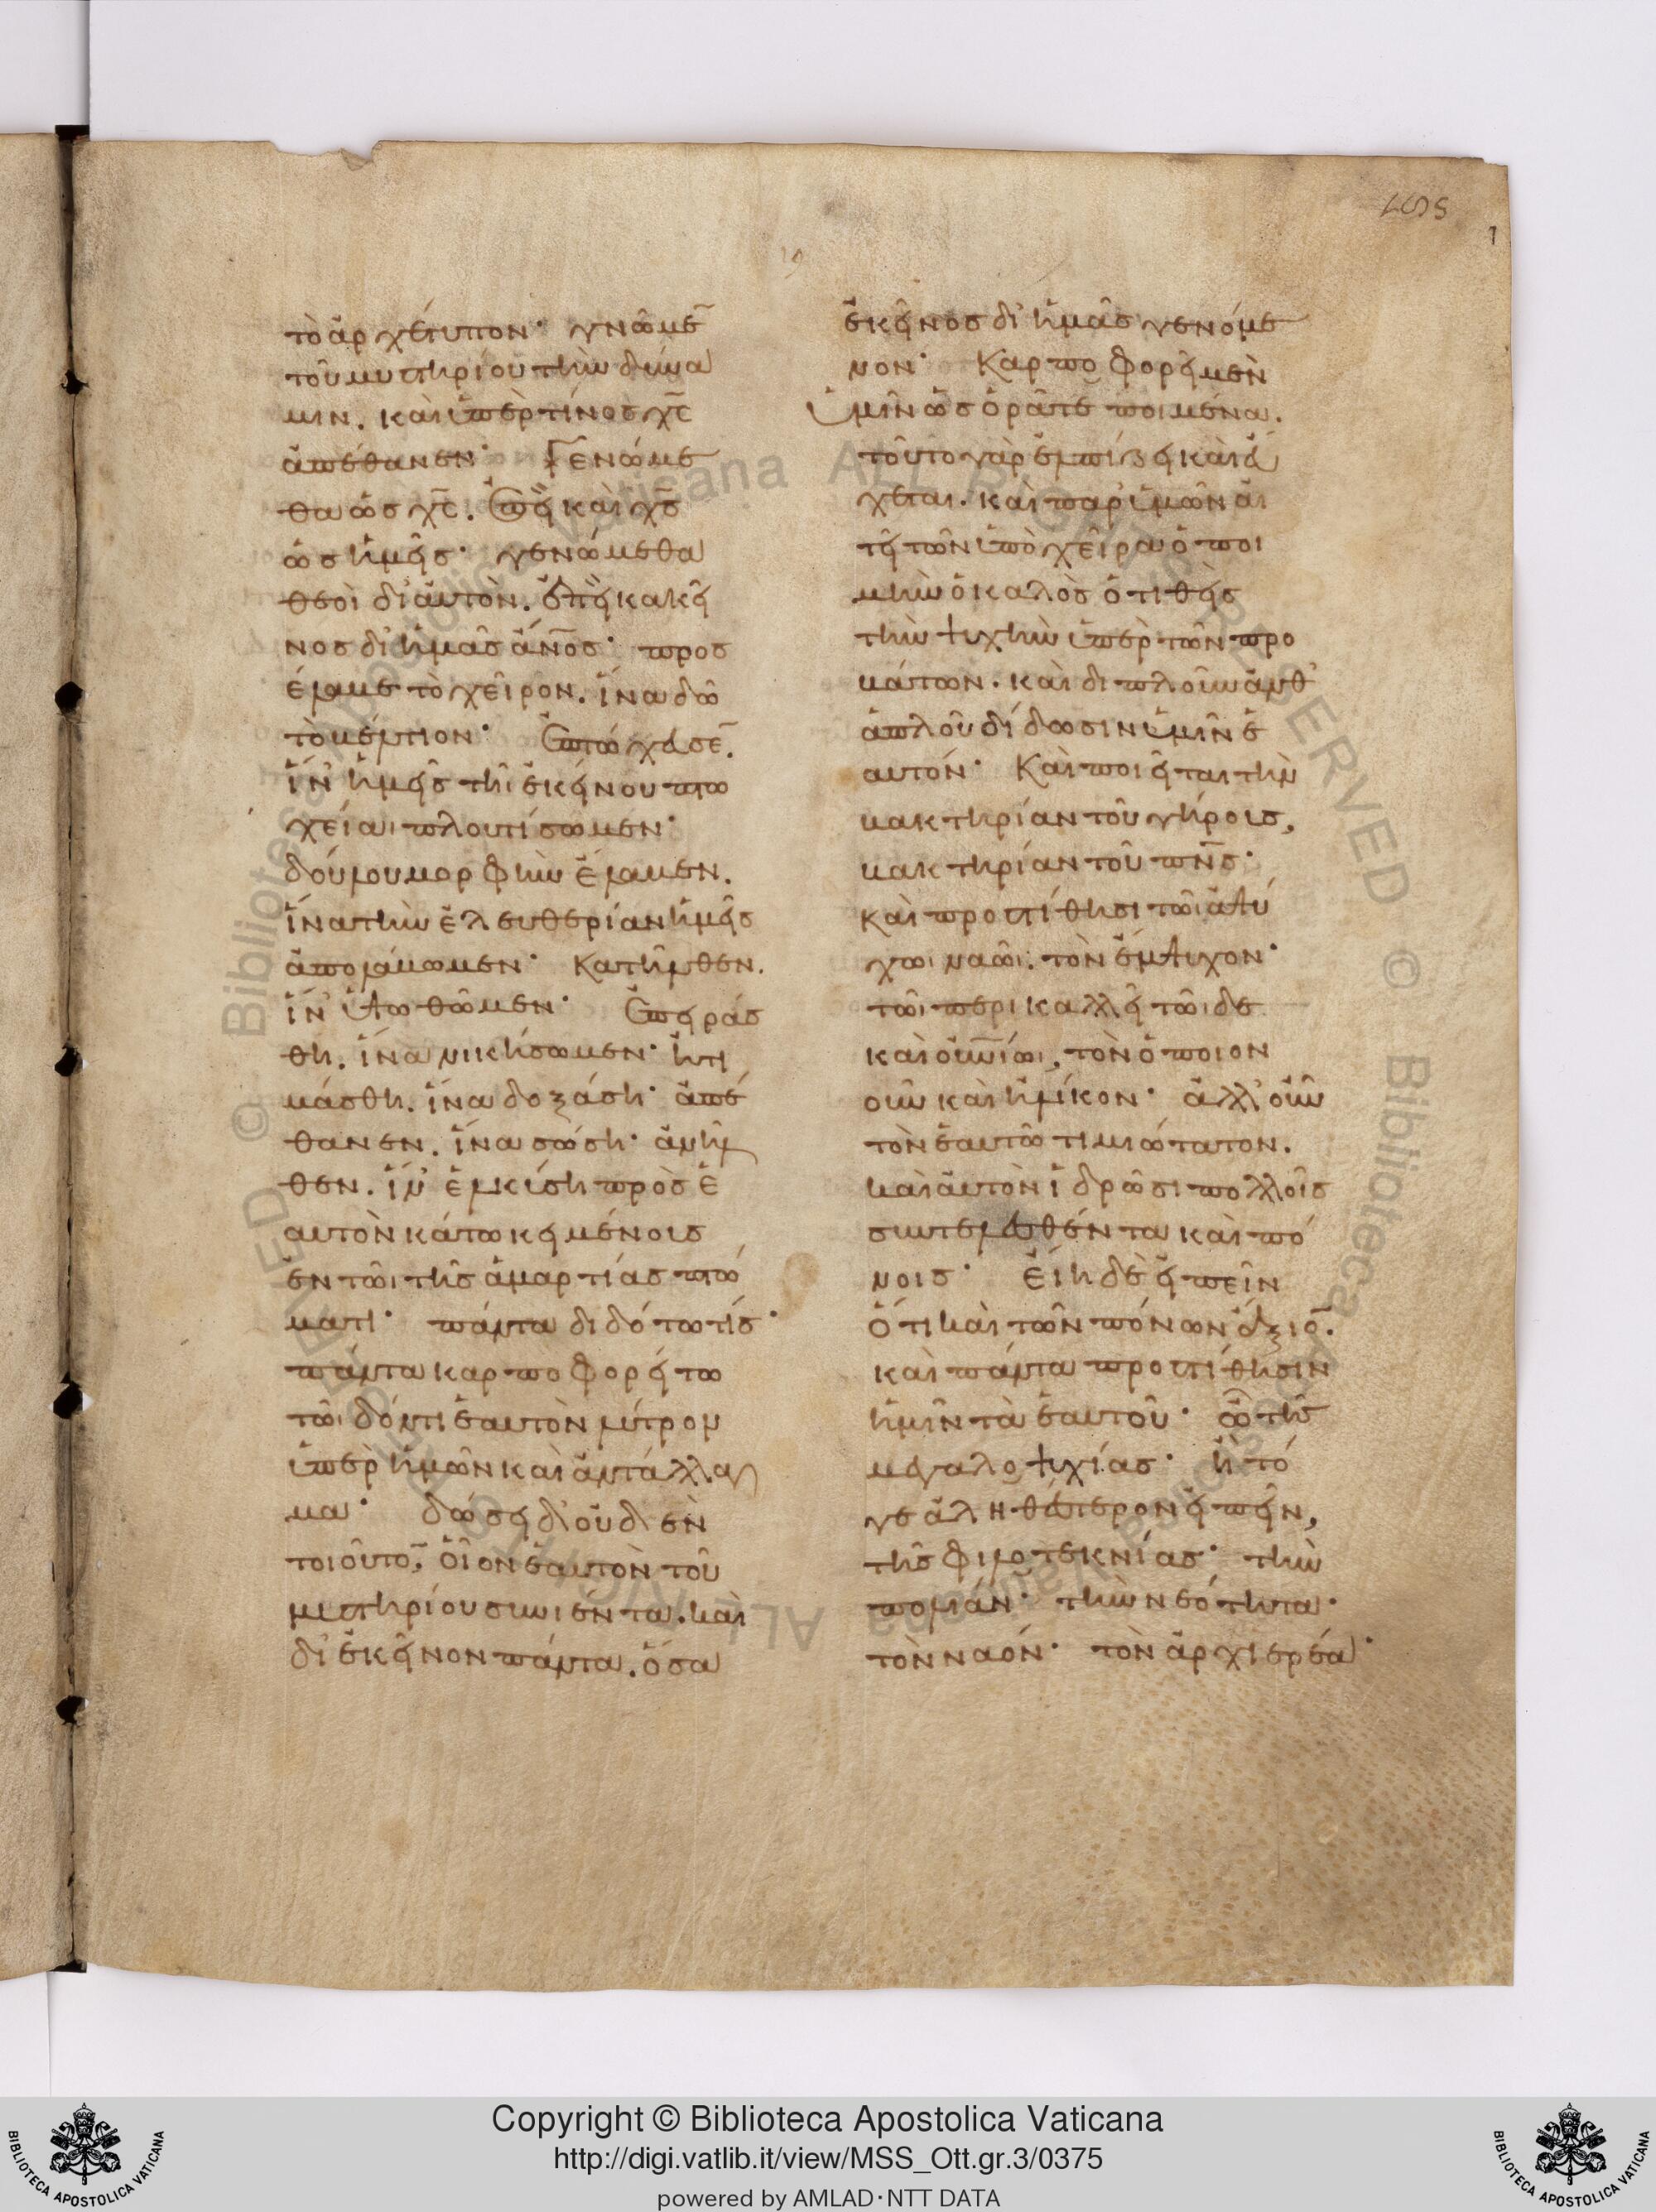 τὸ ἀρχέτυπον· γνῶμε̄
τοῦ μυστηρίου τὴν δύνα
μιν. καὶ ὑπὲρ τίνος χ̄ς
ἀπέθανεν· Γενώμε
θα ὡς χ̄ς. ἐπεὶ καὶ χ̄ς
ὡς ἡμεῖς· γενώμεθα
θεοὶ δι' αὐτὸν. ἐπεὶ κακεῖ
νος δι' ἡμᾶς ἄν̄ος· προσ
έλαβε τὸ χεῖρον. ἵνα δῶ
τὸ βέλτιον· ἐπτώχευσε̄.
ἵν' ἡμεῖς τῆι ἐκείνου πτω
χείαι πλουτίσωμεν·
δούλου μορφὴν ἔλαβεν.
ἵνα τὴν ἐλευθερίαν ἡμεῖς
ἀπολάβωμεν· κατῆλθεν.
ἵν' ὑψωθῶμεν· ἐπειράσ
θη. ἵνα νικήσωμεν· ἠτι
μάσθη. ἵνα δοξάσηι· ἀπέ
θανεν. ἵνα σώσηι· ἀνῆλ
θεν. ἵν' ἑλκύσηι πρὸς ἑ
αυτὸν κάτω κειμένους
ἐν τῶι τῆς ἁμαρτίας πτώ
ματι· πάντα διδότω τίς·
πάντα καρποφορείτω
τῶι δόντι ἑαυτὸν λύτρον
ὑπὲρ ἡμῶν καὶ ἀντάλλαγ
μα· δώσει δ' οὐδὲν
τοιοῦτο̄, οἷον ἑαυτὸν τοῦ
μυστηρίου συνιέντα. καὶ
δι' ἐκεῖνον πάντα. ὅσα
ἐκεῖνος δι' ἡμᾶς γενόμε
νον· Καρποφορεῖ μὲν
ὑμῖν ὡς ὁρᾶτε ποιμένα.
τοῦτο γὰρ ἐλπίζει καὶ εὔ
χεται. καὶ παρ' ὑμῶν αἰ
τεῖ τῶν ὑπὸ χεῖρα ὁ ποι
μὴν ὁ καλὸς ὁ τιθεὶς
τὴν ψυχὴν ὑπὲρ τῶν προ
βάτων. καὶ διπλοῦν ἀνθ'
ἁπλοῦ δίδωσιν ὑμῖν ἑ
αυτόν· Καὶ ποιεῖται τὴν
βακτηρίαν τοῦ γήρους,
βακτηρίαν τοῦ πν̄ς·
καὶ προστίθησι τῶι ἀψύ
χωι ναῶι. τὸν ἔμψυχον·
τῶι περικαλλεῖ τῶιδε
καὶ οὐν̄ίωι, τὸν ὁποῖον
οὖν καὶ ἡλίκον· ἀλλ' οὖν
τὸν ἑαυτῶ τιμιώτατον.
καὶ αὐτὸν ἱδρῶσι πολλοῖς
συντελεσθέντα καὶ πό
νοις· εἴη δὲ εἰπεῖν
ὅτι καὶ τῶν πόνων ἄξιο̄.
καὶ πάντα προστίθησιν
ἡμῖν τὰ ἑαυτοῦ· ὢ τῆς
μεγαλοψυχίας· ἢ τό
γε ἀληθέστερον εἰπεῖν,
τῆς φιλοτεκνίας· τὴν
πολιὰν· τὴν νεότητα·
τὸν ναόν· τὸν ἀρχιερέα·
1
Copyright © Biblioteca Apostolica Vaticana
http://digi.vatlib.it/view/MSS_Ott.gr.3/0375
powered by AMLAD·NTT DATA
BIBLIOTECA APOSTOLICA VATICANA
BIBLIOTECA APOSTOLICA VATICANA